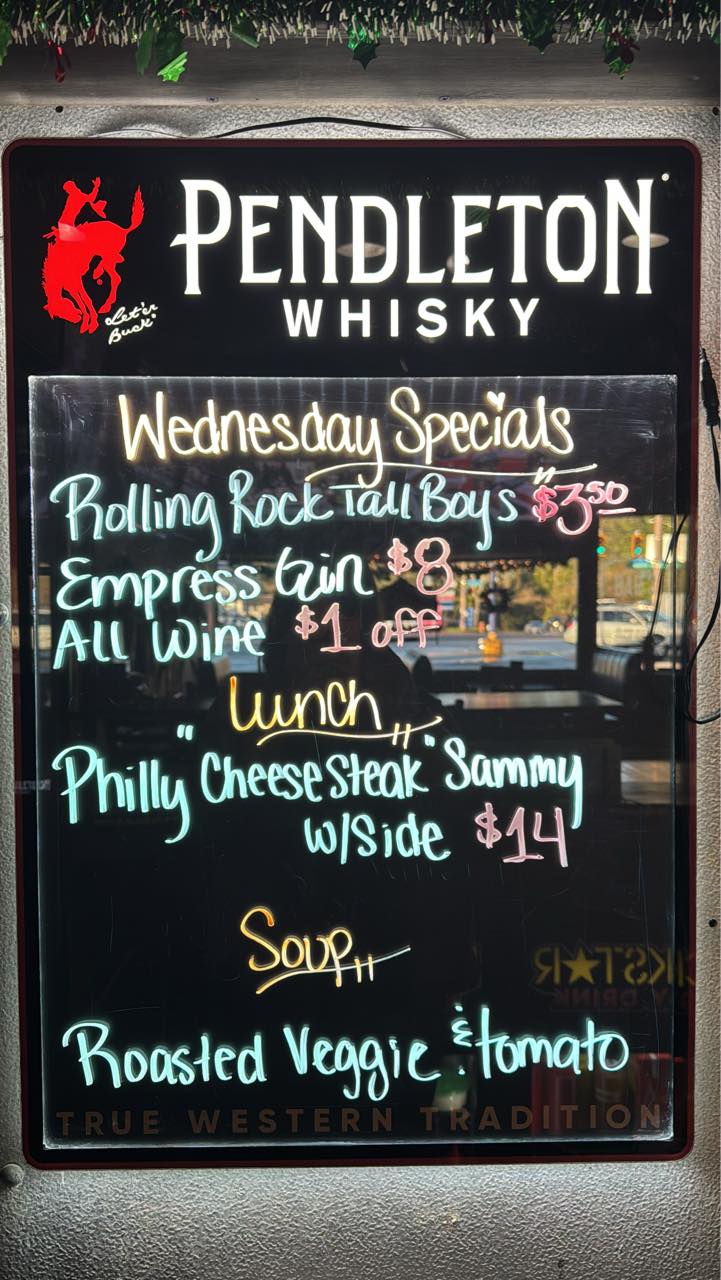 PENDLETON
WHISKY
Let'er
Buck®
Wednesday Specials
Rolling Rock Tall Boys $3.50
Empress Gin $8
All Wine $1 off
Lunch
Philly "Cheese Steak" Sammy
w/Side $14
Soup
Roasted Veggie & tomato
TRUE WESTERN TRADITION